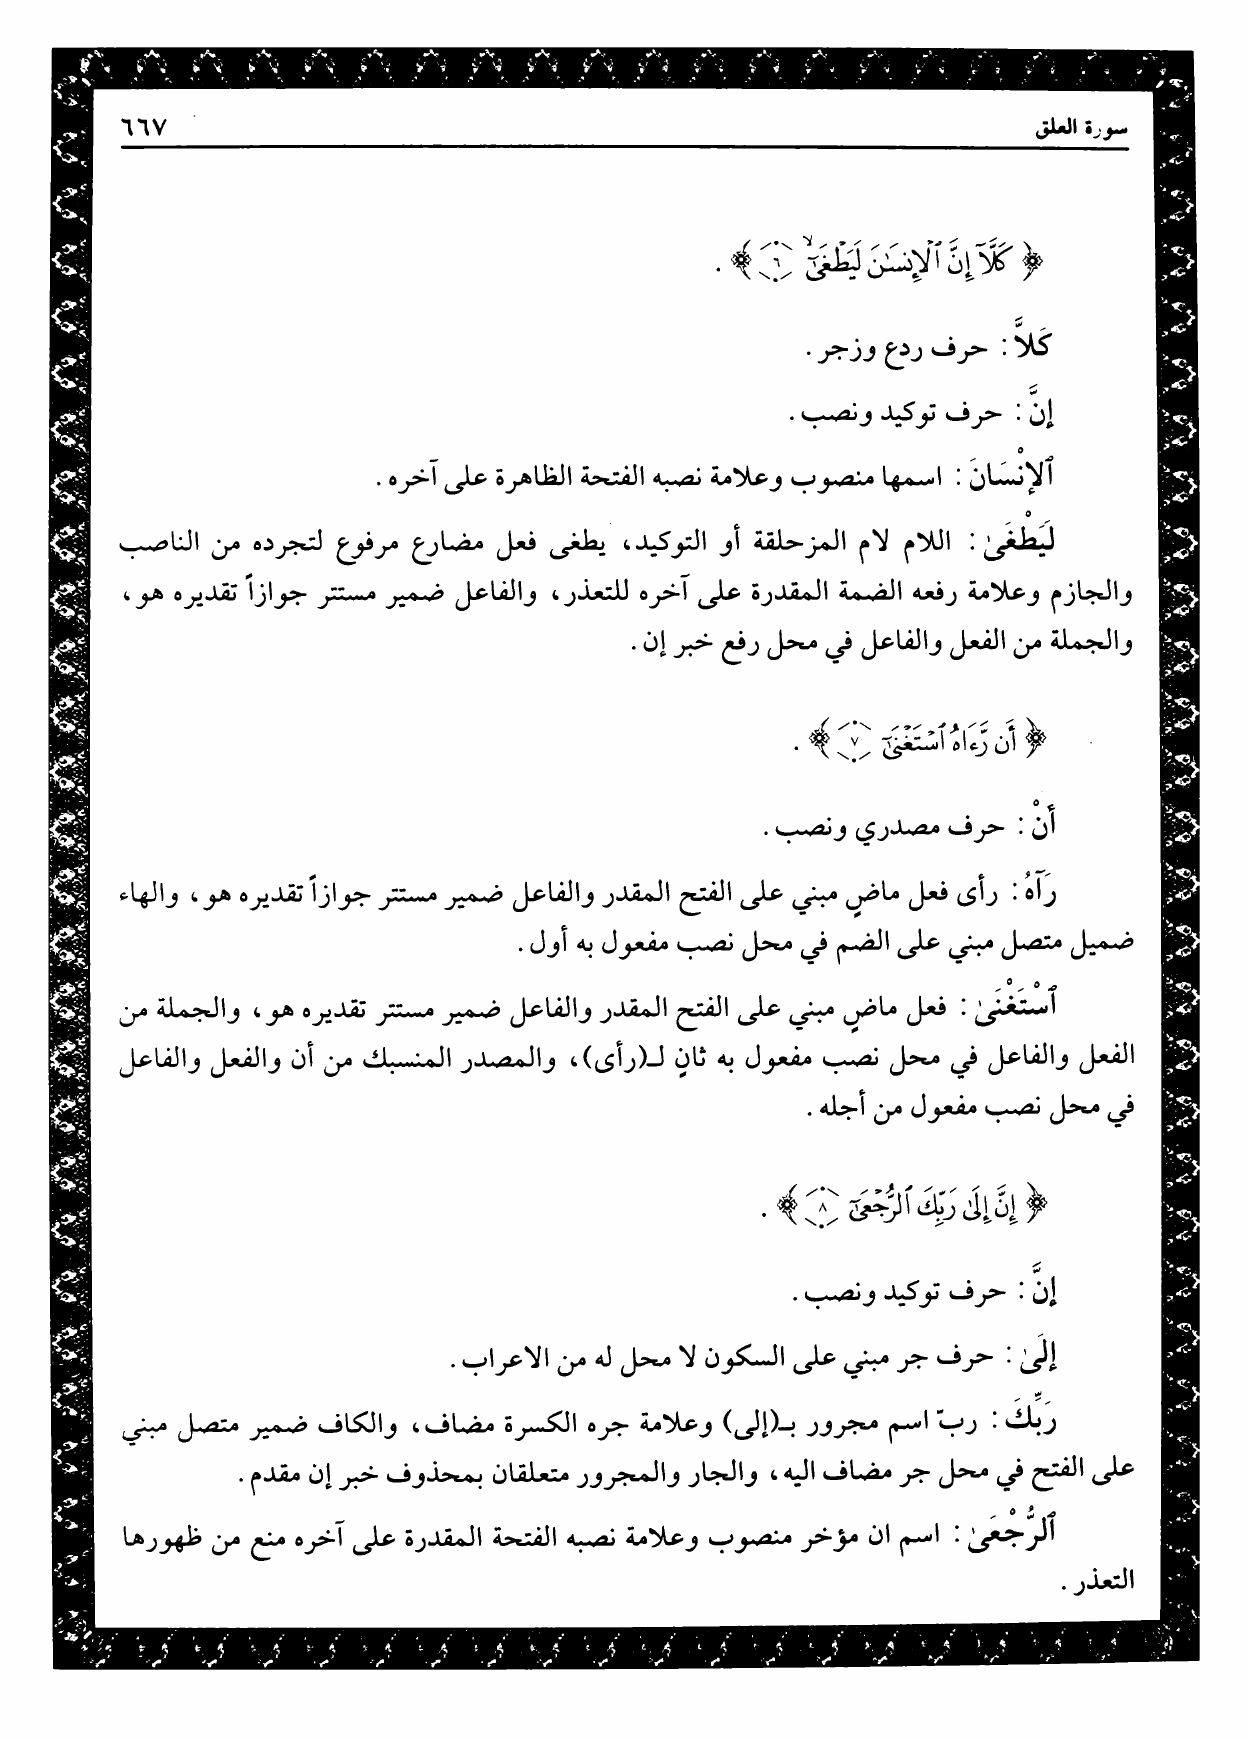 سورة العلق
٦٦٧
﴿ كَلَّآ إِنَّ ٱلْإِنسَٰنَ لَيَطْغَىٰٓ ۙ ٦ ﴾ .
كَلاَّ : حرف ردع وزجر .
إنَّ : حرف توكيد ونصب .
ٱلإنْسَانَ : اسمها منصوب وعلامة نصبه الفتحة الظاهرة على آخره .
لَيَطْغَىٰ : اللام لام المزحلقة أو التوكيد، يطغى فعل مضارع مرفوع لتجرده من الناصب
والجازم وعلامة رفعه الضمة المقدرة على آخره للتعذر، والفاعل ضمير مستتر جوازاً تقديره هو،
والجملة من الفعل والفاعل في محل رفع خبر إن .
﴿ أَن رَّءَاهُ ٱسْتَغْنَىٰٓ ٧ ﴾ .
أنْ : حرف مصدري ونصب .
رَآهُ : رأى فعل ماضٍ مبني على الفتح المقدر والفاعل ضمير مستتر جوازاً تقديره هو، والهاء
ضميل متصل مبني على الضم في محل نصب مفعول به أول .
ٱسْتَغْنَىٰ : فعل ماضٍ مبني على الفتح المقدر والفاعل ضمير مستتر تقديره هو، والجملة من
الفعل والفاعل في محل نصب مفعول به ثانٍ لـ(رأى)، والمصدر المنسبك من أن والفعل والفاعل
في محل نصب مفعول من أجله .
﴿ إِنَّ إِلَىٰ رَبِّكَ ٱلرُّجْعَىٰٓ ٨ ﴾ .
إنَّ : حرف توكيد ونصب .
إلَىٰ : حرف جر مبني على السكون لا محل له من الاعراب .
رَبِّكَ : ربّ اسم مجرور بـ(إلى) وعلامة جره الكسرة مضاف، والكاف ضمير متصل مبني
على الفتح في محل جر مضاف اليه، والجار والمجرور متعلقان بمحذوف خبر إن مقدم .
ٱلرُّجْعَىٰ : اسم ان مؤخر منصوب وعلامة نصبه الفتحة المقدرة على آخره منع من ظهورها
التعذر .